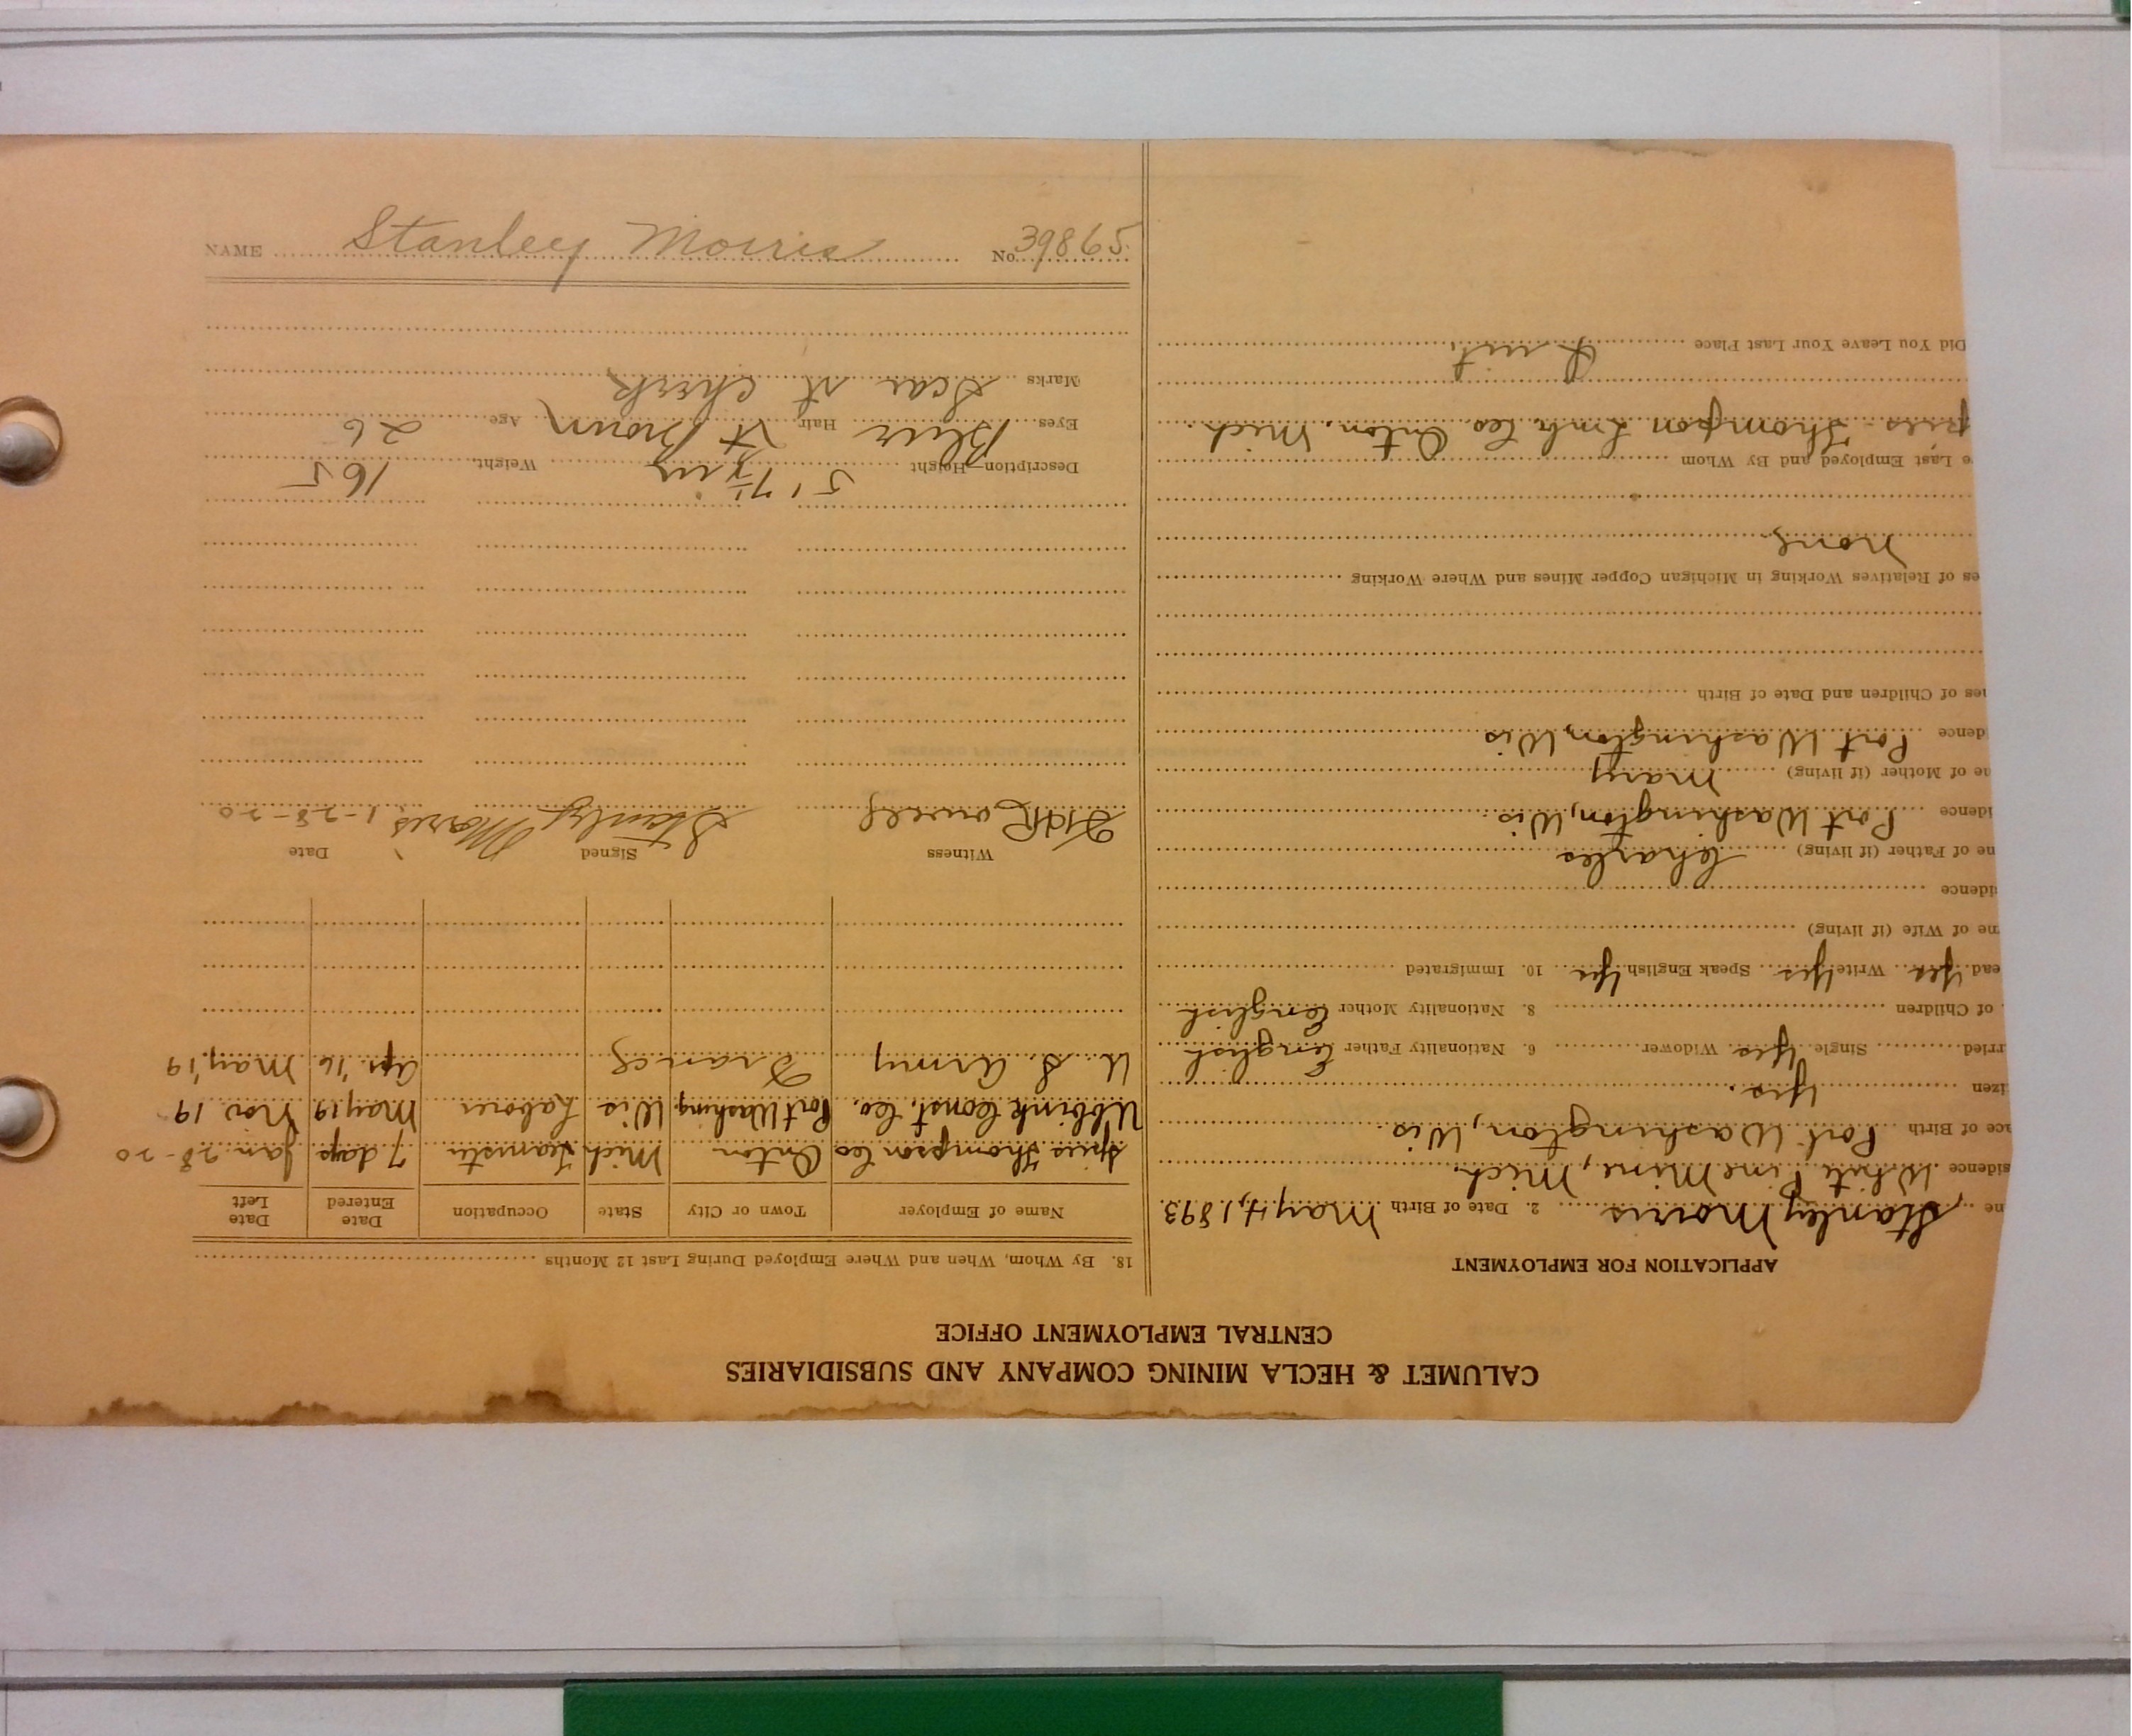 CALUMET & HECLA MINING COMPANY AND SUBSIDIARIES
CENTRAL EMPLOYMENT OFFICE
APPLICATION FOR EMPLOYMENT
ne Stanley Morris 2. Date of Birth May 4, 1893
sidence White Pine Mine, Mich.
ace of Birth Port Washington, Wis.
izen Yes.
rried Single Yes Widower 6. Nationality Father English
of Children 8. Nationality Mother English
ead Yes Write Yes Speak English Yes 10. Immigrated
ne of Wife (if living)
idence
ne of Father (if living) Charles
idence Port Washington, Wis.
ne of Mother (if living) Mary
dence Port Washington, Wis
nes of Children and Date of Birth
es of Relatives Working in Michigan Copper Mines and Where Working
None
e Last Employed and By Whom
Thompson Lmb. Co. Onton, Mich.
Did You Leave Your Last Place Quit.
18. By Whom, When and Where Employed During Last 12 Months
Name of Employer Town or City State Occupation Date Entered Date Left
Spies Thompson Co Onton Mich Teamster 7 days Jan 28-20
Ubbink Const. Co. Port Washing. Wis Laborer May, 19 Nov. 19
U. S. Army France Apr. '16 May, '19
Witness Signed Date
Stanley Morris 1-28-20
Description—Height 5' 7½ in Weight 165
Eyes Blue Hair Lt Brown Age 26
Marks Scar rt cheek
NAME Stanley Morris No. 39865